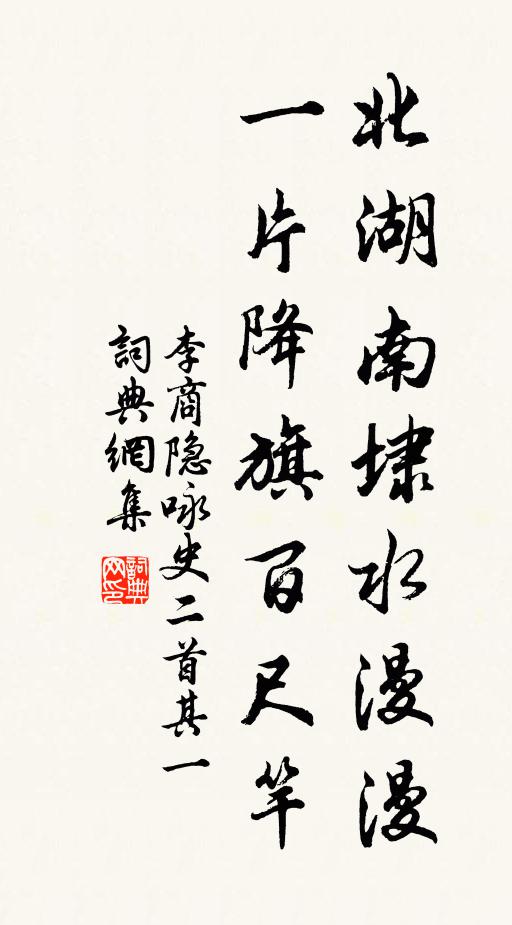 北湖南埭水漫漫
一片降旗百尺竿
李商隐咏史二首其一
詞典網集
詞典网印